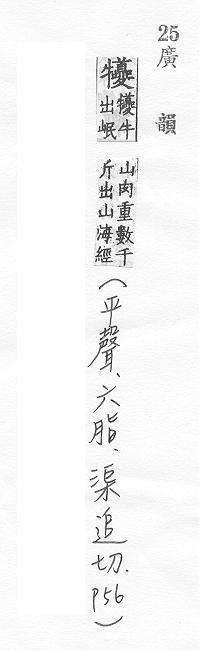 25
廣韻
犪
犪牛
出岷
山肉重數千
斤出山海經
（平聲、六脂、渠追切．P56）